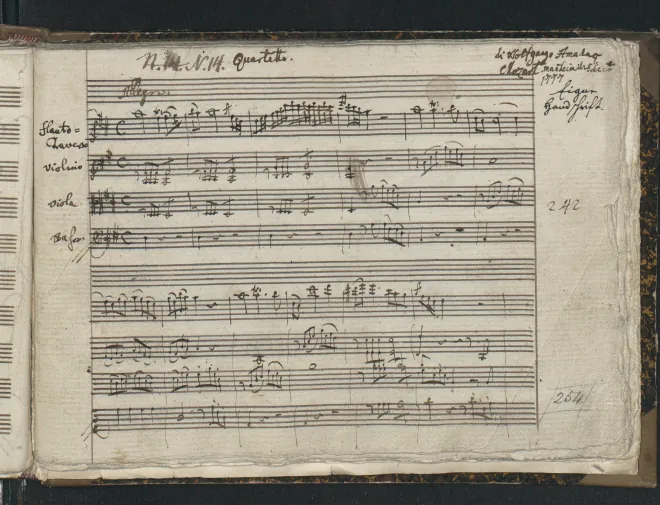 N. 14. N. 14. Quartetto.
di Wolfgango Amadeo
Mozart
1777
Eigne
Handschrift.
Allegro.
Flauto
Traverso
Violino
Viola
Basso
242
254